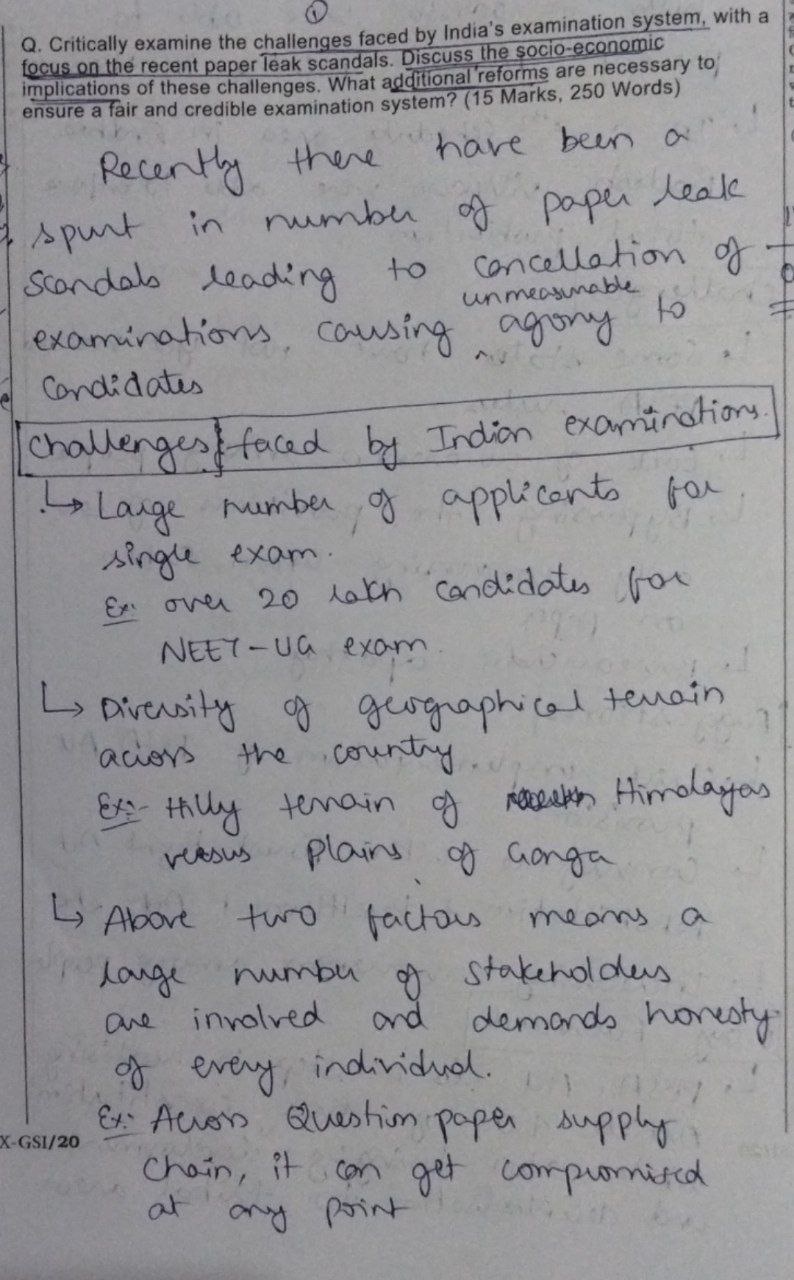 ①
Q. Critically examine the challenges faced by India's examination system, with a
focus on the recent paper leak scandals. Discuss the socio-economic
implications of these challenges. What additional reforms are necessary to
ensure a fair and credible examination system? (15 Marks, 250 Words)
Recently there have been a
spurt in number of paper leak
scandals leading to cancellation of
unmeasurable
examinations, causing agony to
candidates
Challenges faced by Indian examinations.
↳ Large number of applicants for
single exam.
Ex: over 20 lakh candidates for
NEET-UG exam.
↳ Diversity of geographical terrain
across the country
Ex:- Hilly terrain of Himalayas
versus plains of Ganga
↳ Above two factors means a
large number of stakeholders
are involved and demands honesty
of every individual.
Ex:- Across Question paper supply
X-GSI/20
chain, it can get compromised
at any point